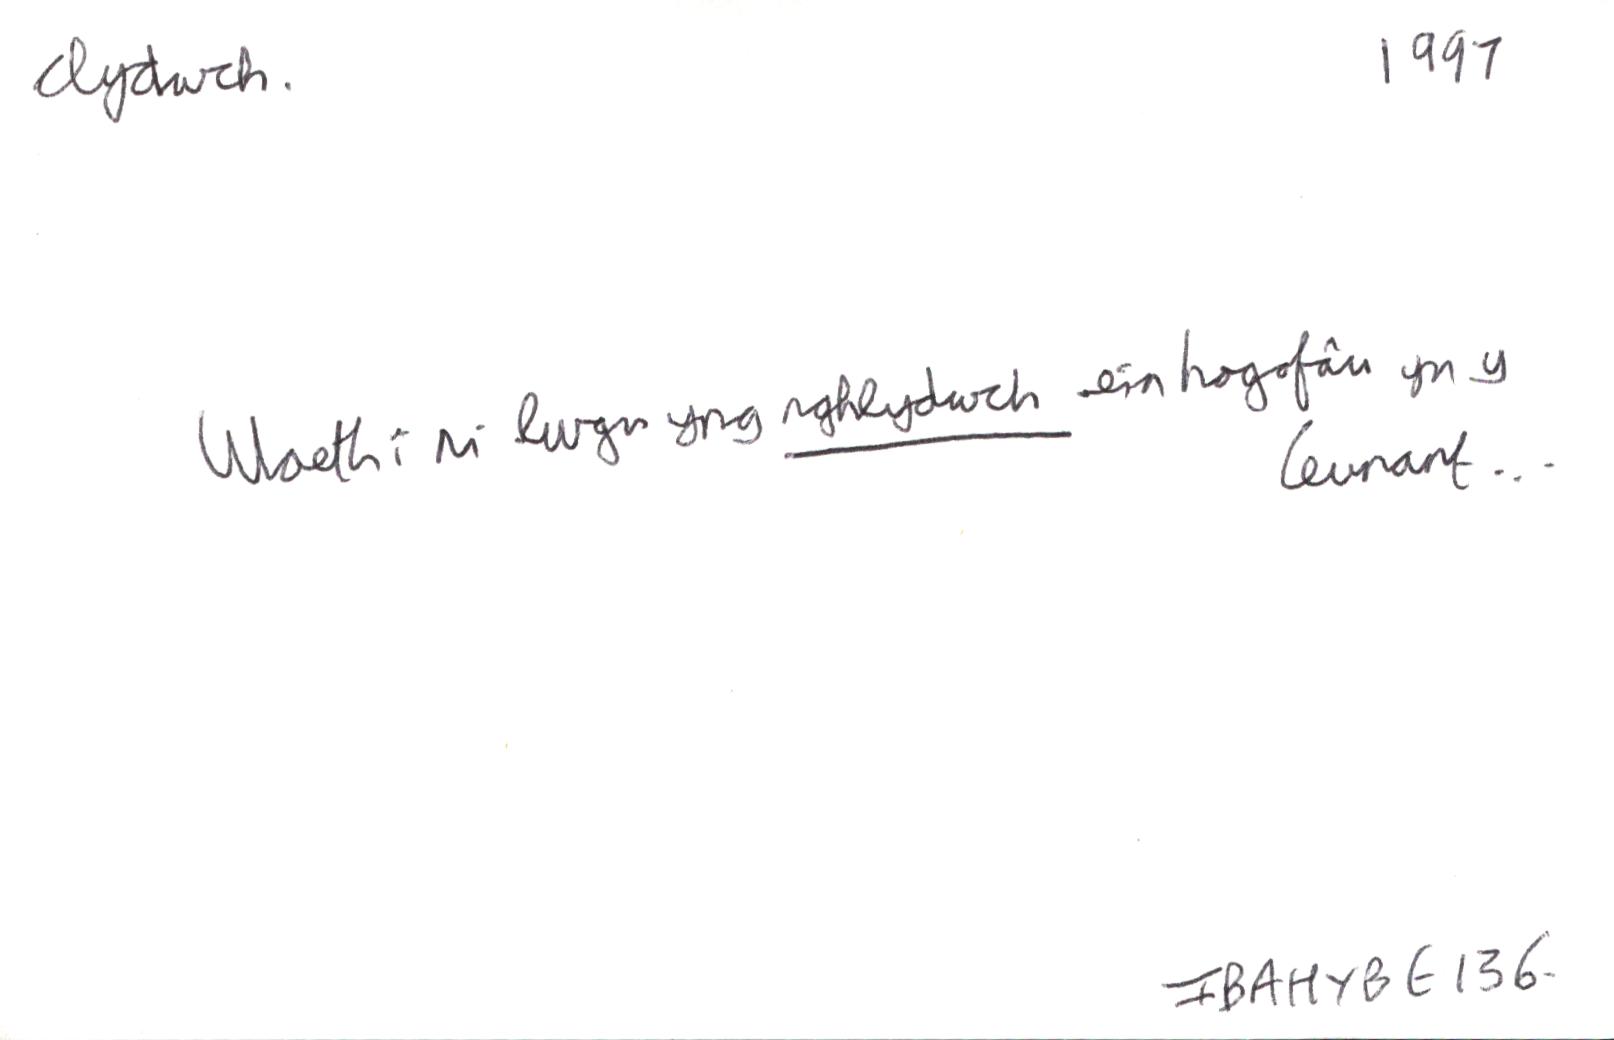 clydwch.
1997
Waeth i ni lwgu yng nghlydwch ein hogofâu yn y
Ceunant...
IBAHYBE 136.